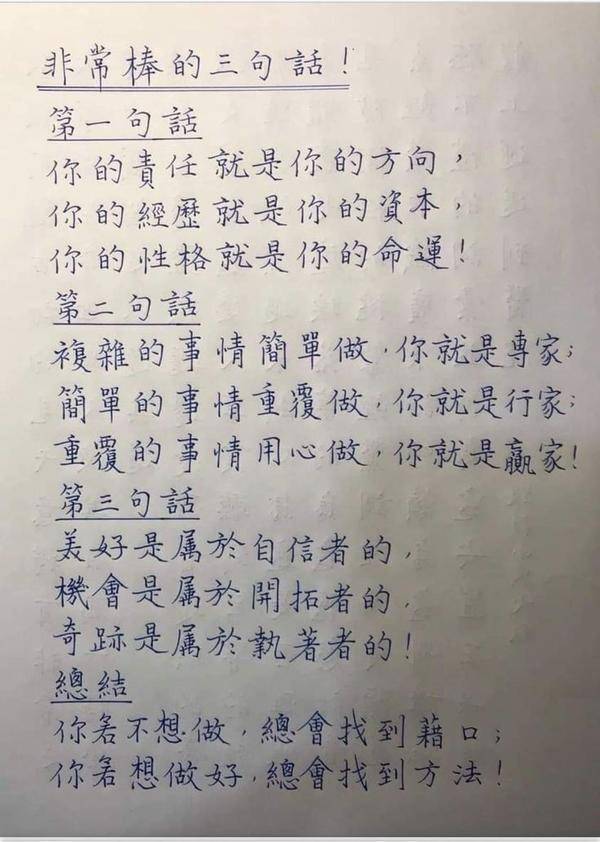 非常棒的三句話！
第一句話
你的責任就是你的方向，
你的經歷就是你的資本，
你的性格就是你的命運！
第二句話
複雜的事情簡單做，你就是專家；
簡單的事情重覆做，你就是行家；
重覆的事情用心做，你就是贏家！
第三句話
美好是属於自信者的，
機會是属於開拓者的，
奇跡是属於執著者的！
總結
你若不想做，總會找到藉口；
你若想做好，總會找到方法！